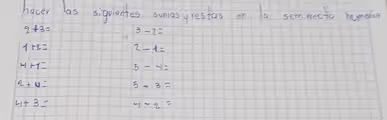 hacer las siguientes sumas y restas en la semirrecta numérica
2+3=
3-2=
1+2=
2-1=
4+1=
5-4=
2+4=
5-3=
4+3=
4-2=